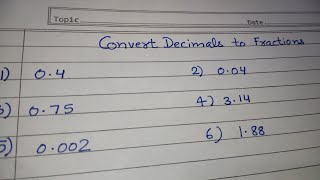 Topic Date
Convert Decimals to Fractions
1) 0.4 2) 0.04
3) 0.75 4) 3.14
5) 0.002 6) 1.88